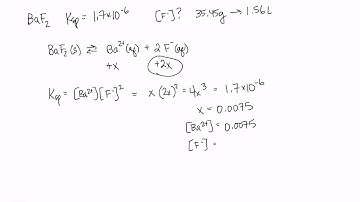 BaF₂ Ksp = 1.7×10⁻⁶ [F⁻]? 35.45g → 1.56L
BaF₂(s) ⇄ Ba²⁺(aq) + 2 F⁻(aq)
+x +2x
Ksp = [Ba²⁺][F⁻]² = x (2x)² = 4x³ = 1.7×10⁻⁶
x = 0.0075
[Ba²⁺] = 0.0075
[F⁻] =